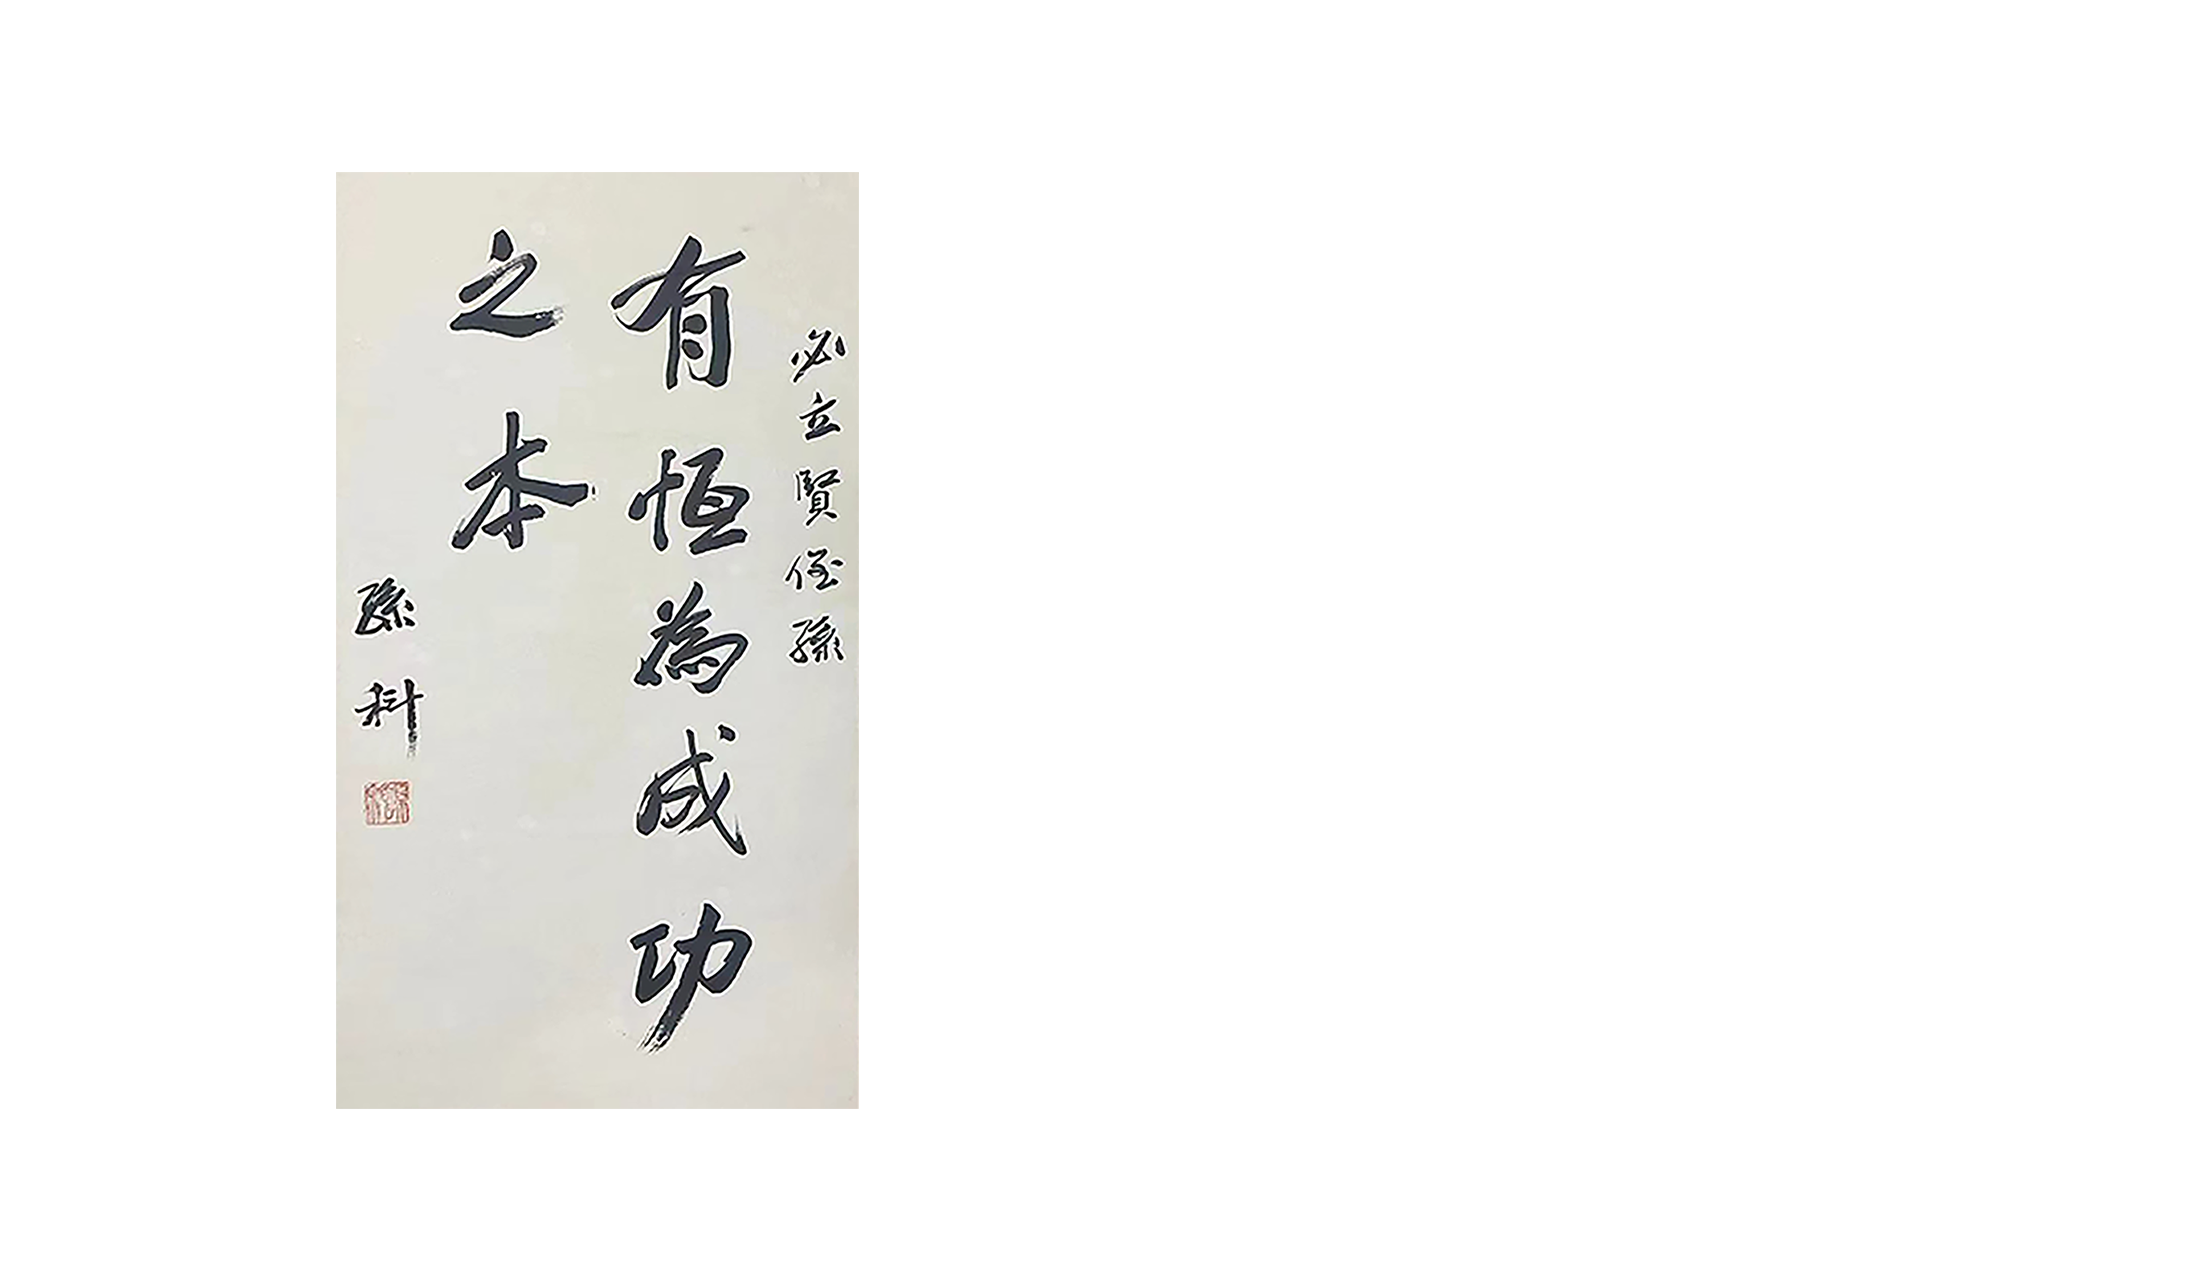 必立賢侄孫
有恒為成功
之本
孫科